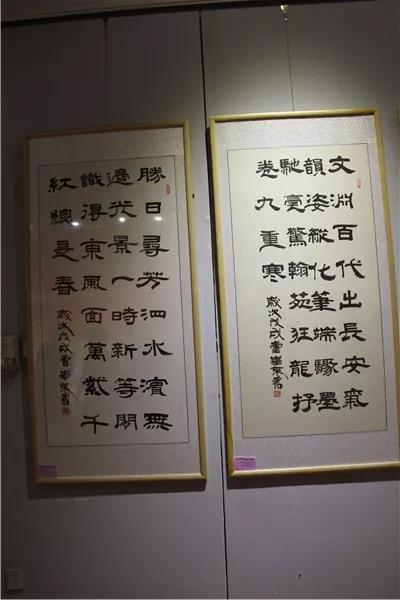 文淵百代出長安氣
韻姿縱化筆端驟墨
馳毫驚翰苑狂龍抒
卷九重寒
歲次戊戌
勝日尋芳泗水濱無
邊光景一時新等閑
識得東風面萬紫千
紅總是春
歲次戊戌